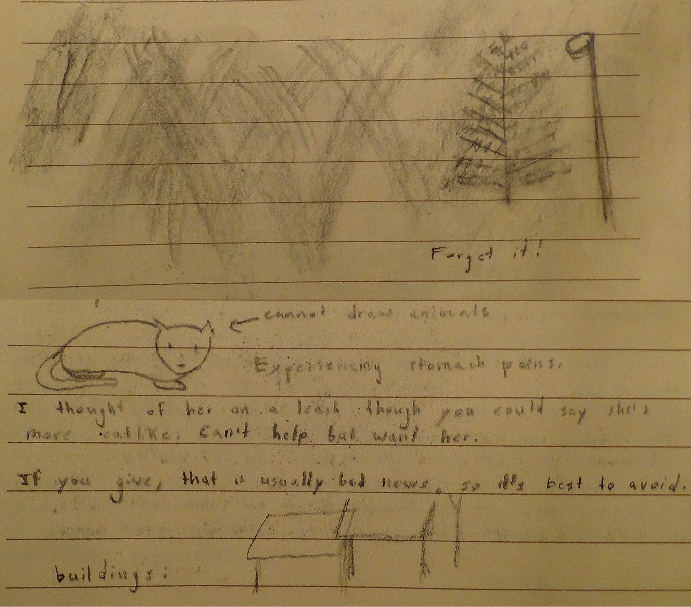 Forget it!
cannot draw animals
Experiencing stomach pains.
I thought of her on a leash though you could say she's
more catlike. Can't help but want her.
If you give, that is usually bad news, so it's best to avoid.
buildings: